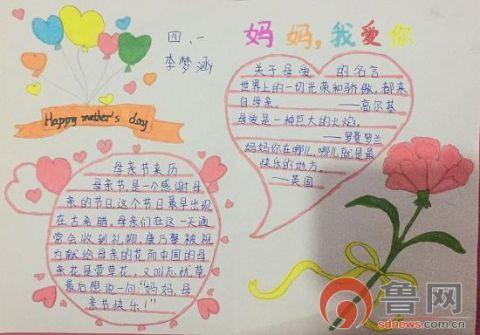 妈妈,我爱你
四、一
李梦涵
Happy mother's day
关于母爱的名言
世界上的一切光荣和骄傲,都来
自母亲。——高尔基
母爱是一种巨大的火焰。
——罗曼罗兰
妈妈你在哪儿,哪儿就是最
快乐的地方。
——英国
母亲节来历
母亲节是一个感谢母
亲的节日,这个节日最早出现
在古希腊。母亲们在这一天通
常会收到礼物,康乃馨被视
为献给母亲的花,而中国的母
亲花是萱草花,又叫忘忧草,
最后想说一句:“妈妈,母
亲节快乐!”
鲁网
sdnews.com.cn